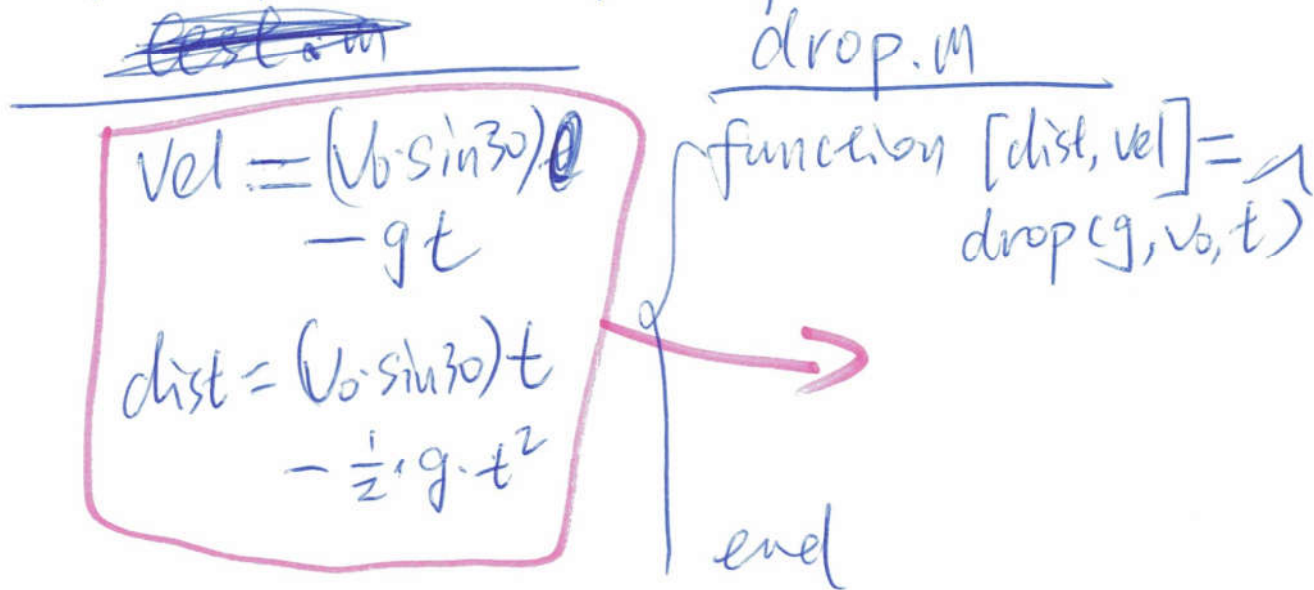 test.m
vel = (v₀·sin30)
- gt
dist = (v₀·sin30)t
- 1/2·g·t²
drop.m
function [dist, vel] =
drop(g, v₀, t)
end